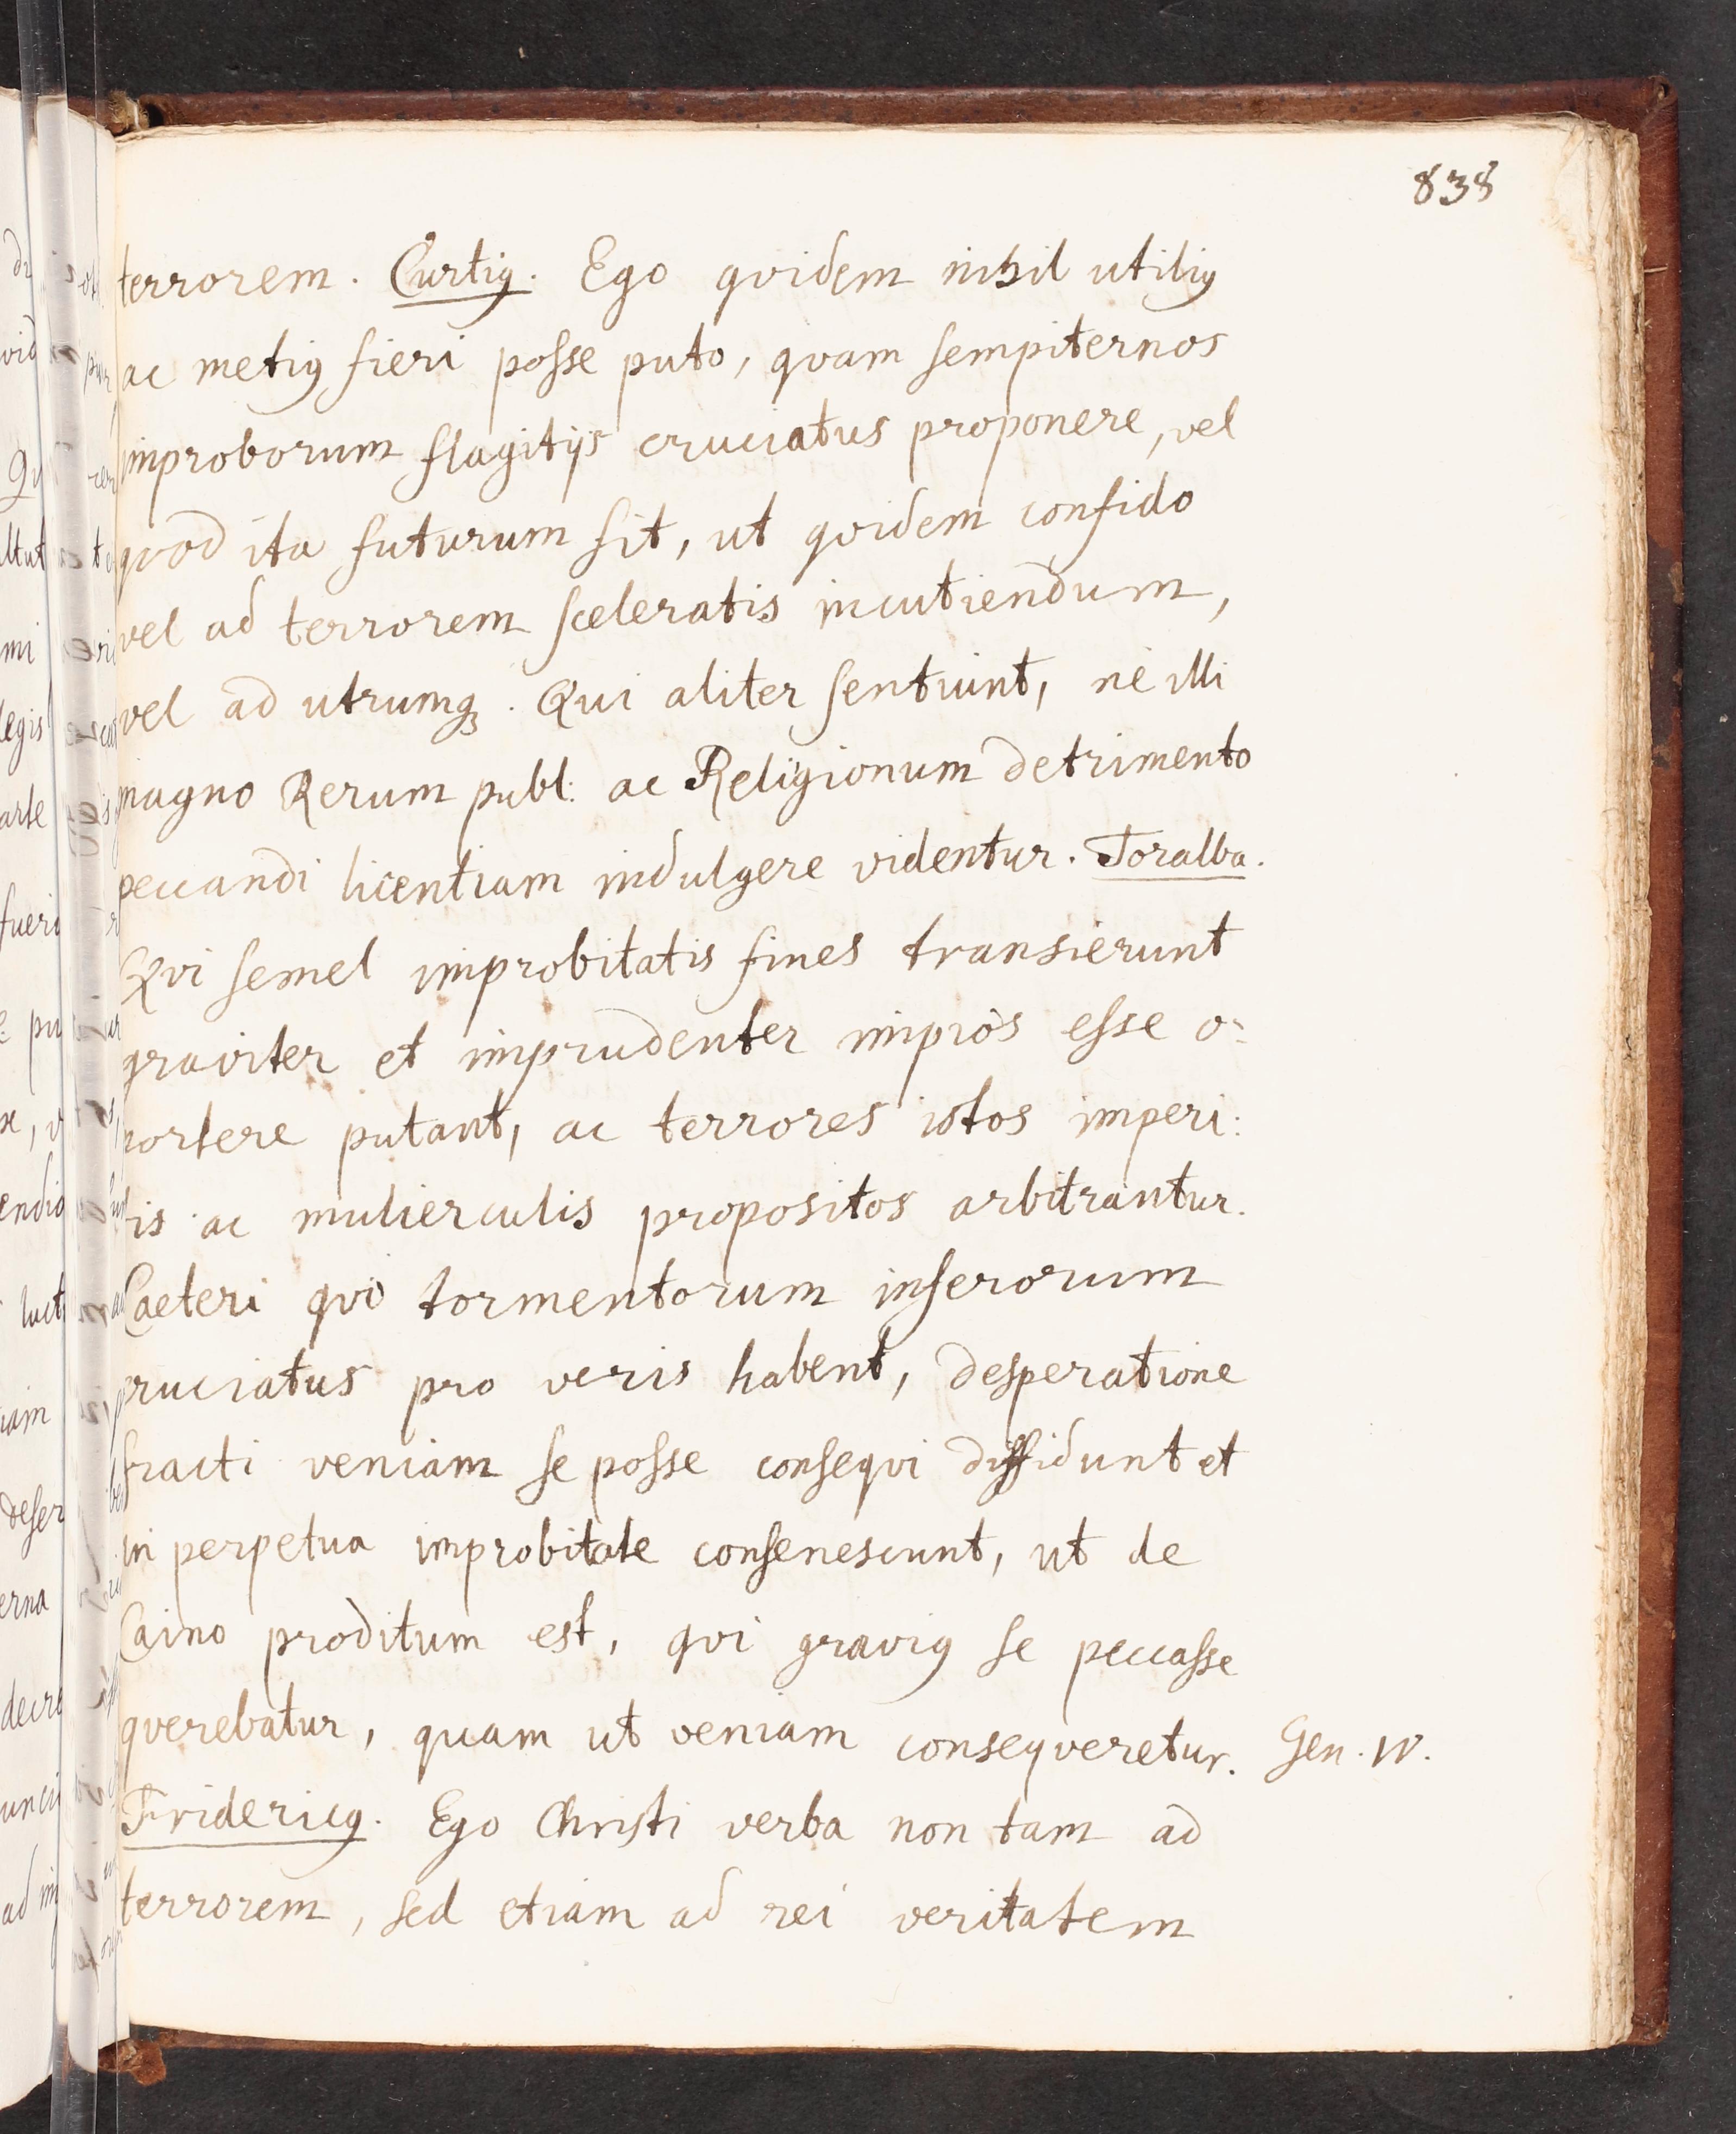 838
terrorem. Curtiꝰ. Ego qvidem nihil utiliꝰ
ac metiꝰ fieri posse puto, qvam sempiternos
improborum flagitijs cruciatus proponere, vel
qvod ita futurum sit, ut qvidem confido
vel ad terrorem sceleratis incutiendum,
vel ad utrumqꝫ. Qui aliter sentiunt, nè illi
magno Rerum publ: ac Religionum detrimento
peccandi licentiam indulgere videntur. Toralba.
Qvi semel improbitatis fines transierunt
graviter et imprudenter impiòs esse o-
portere putant, ac terrores istos imperi:
tis ac mulierculis propositos arbitrantur.
Caeteri qvi tormentorum inferorum
cruciatus pro veris habent, desperatione
fracti veniam se posse conseqvi diffidunt et
in perpetua improbitate consenescunt, ut de
Caino proditum est, qvi graviꝰ se peccasse
qverebatur, quam ut veniam conseqveretur. Gen. IV.
Fridericꝰ. Ego Christi verba non tam ad
terrorem, sed etiam ad rei veritatem